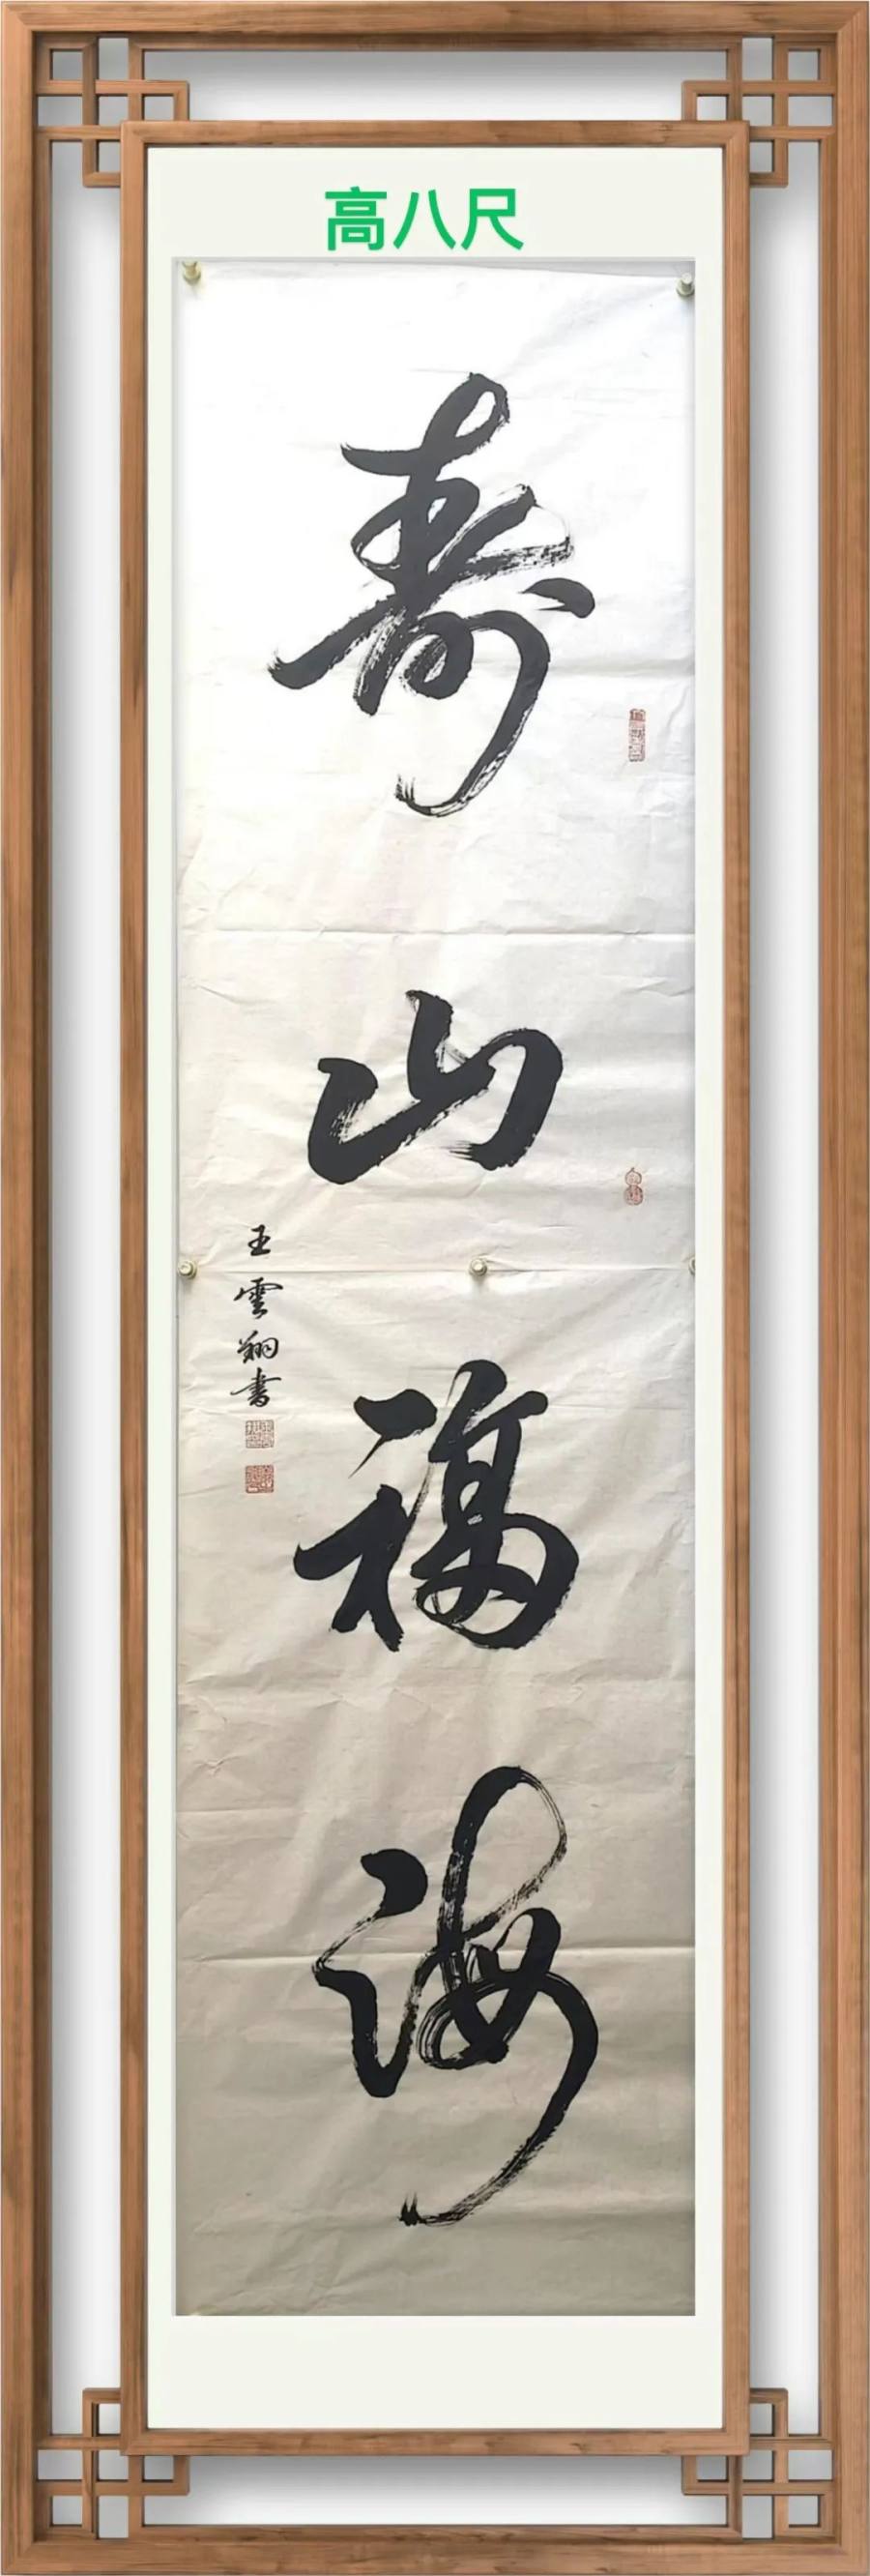 高八尺
寿山福海
王雲翔書